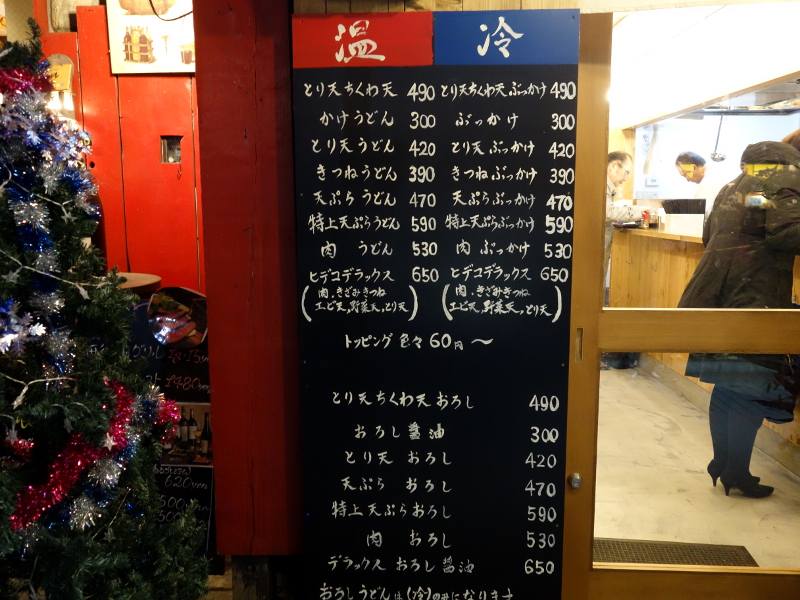 温 冷
とり天ちくわ天 490 とり天ちくわ天ぶっかけ 490
かけうどん 300 ぶっかけ 300
とり天うどん 420 とり天ぶっかけ 420
きつねうどん 390 きつねぶっかけ 390
天ぷらうどん 470 天ぷらぶっかけ 470
特上天ぷらうどん 590 特上天ぷらぶっかけ 590
肉うどん 530 肉ぶっかけ 530
ヒデコデラックス 650 ヒデコデラックス 650
(肉,きざみきつね (肉,きざみきつね
エビ天,野菜天,とり天) エビ天,野菜天,とり天)
トッピング色々60円〜
とり天ちくわ天おろし 490
おろし醤油 300
とり天おろし 420
天ぷらおろし 470
特上天ぷらおろし 590
肉おろし 530
デラックスおろし醤油 650
おろしうどんは(冷)のみになります
620yen